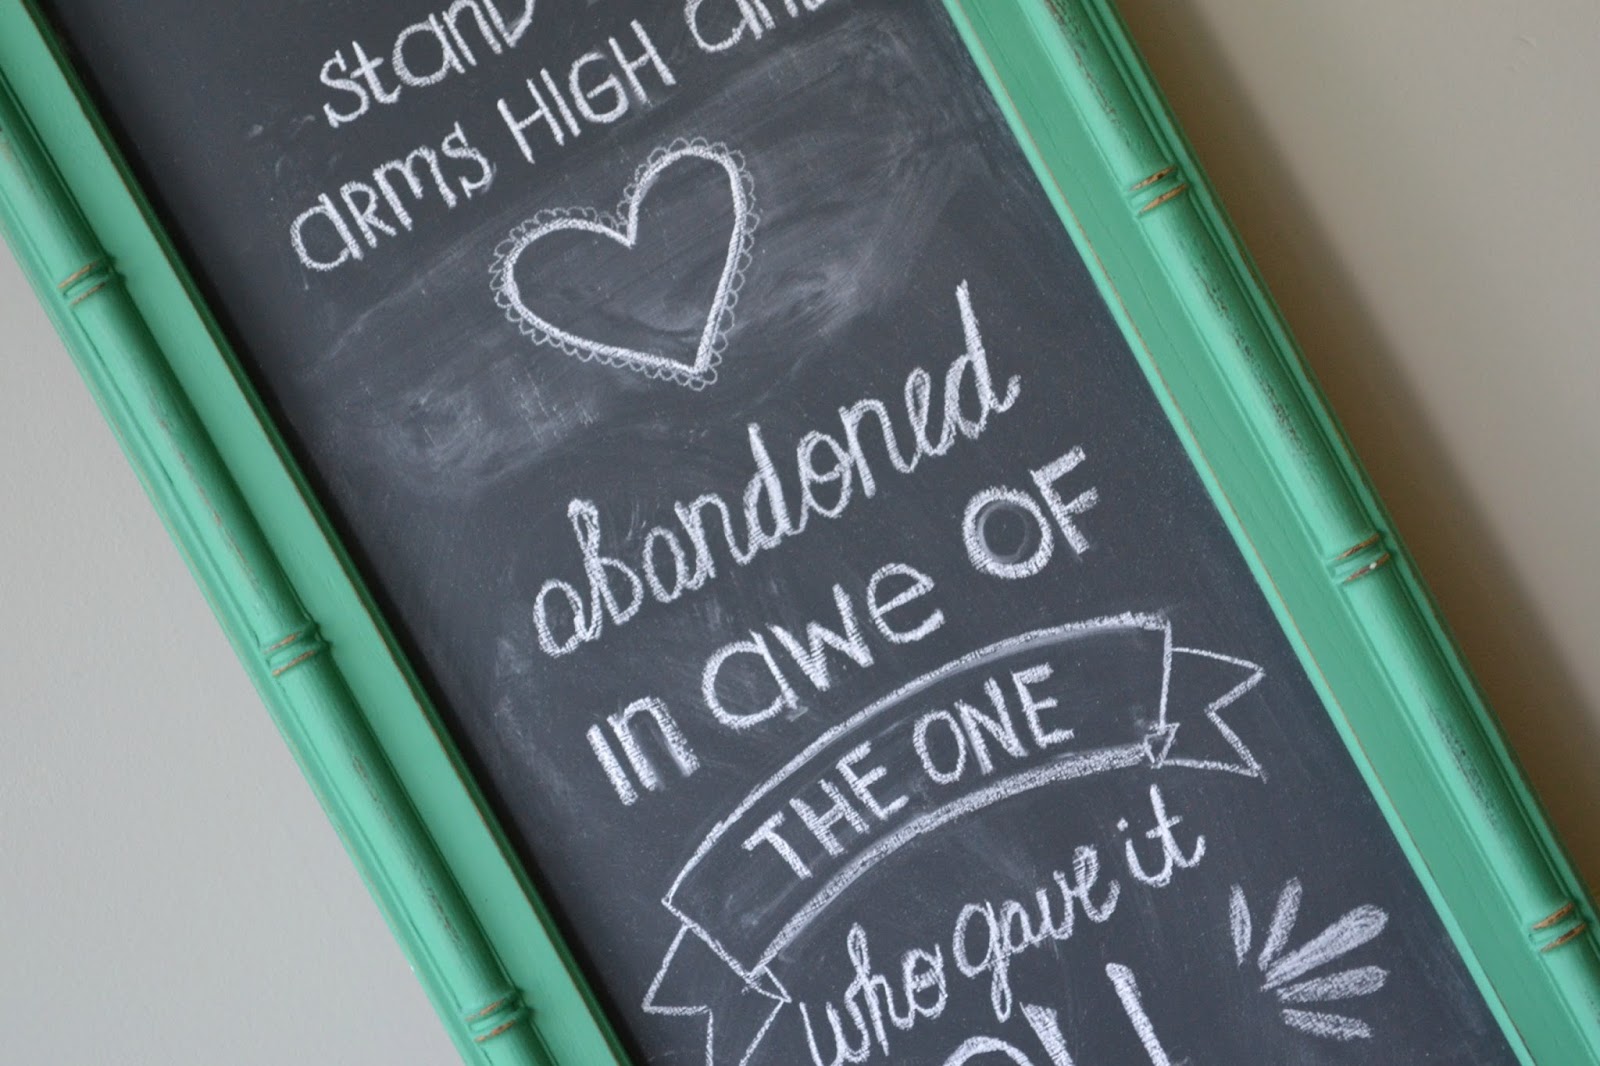 stand
arms HIGH and
abandoned
in awe OF
THE ONE
who gave it